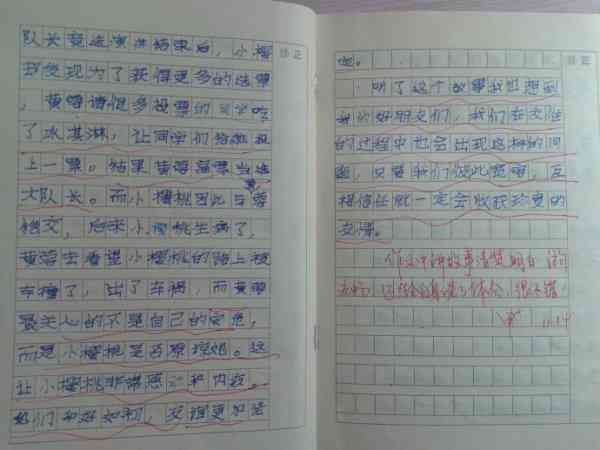 队长竞选演讲结束后,小樱
桃发现为了获得更多的选票
,黄蓉请很多投票的同学吃
了冰淇淋,让同学们给她投
上一票。结果黄蓉高票当选
大队长。而小樱桃因此与蓉
绝交,后来小樱桃生病了,
黄蓉去看望小樱桃的路上被
车撞了,出了车祸,而黄蓉
最关心的不是自己的安危,
而是小樱桃是否原谅她。这
让小樱桃非常感动和内疚。
她们和好如初,友谊更加坚
固。
听了这个故事我也想到
我的好朋友们,我们在交往
的过程中也会出现这样的问
题,只要我们彼此宽容,互
相信任就一定会收获珍贵的
友情。
修正
修正
11.14